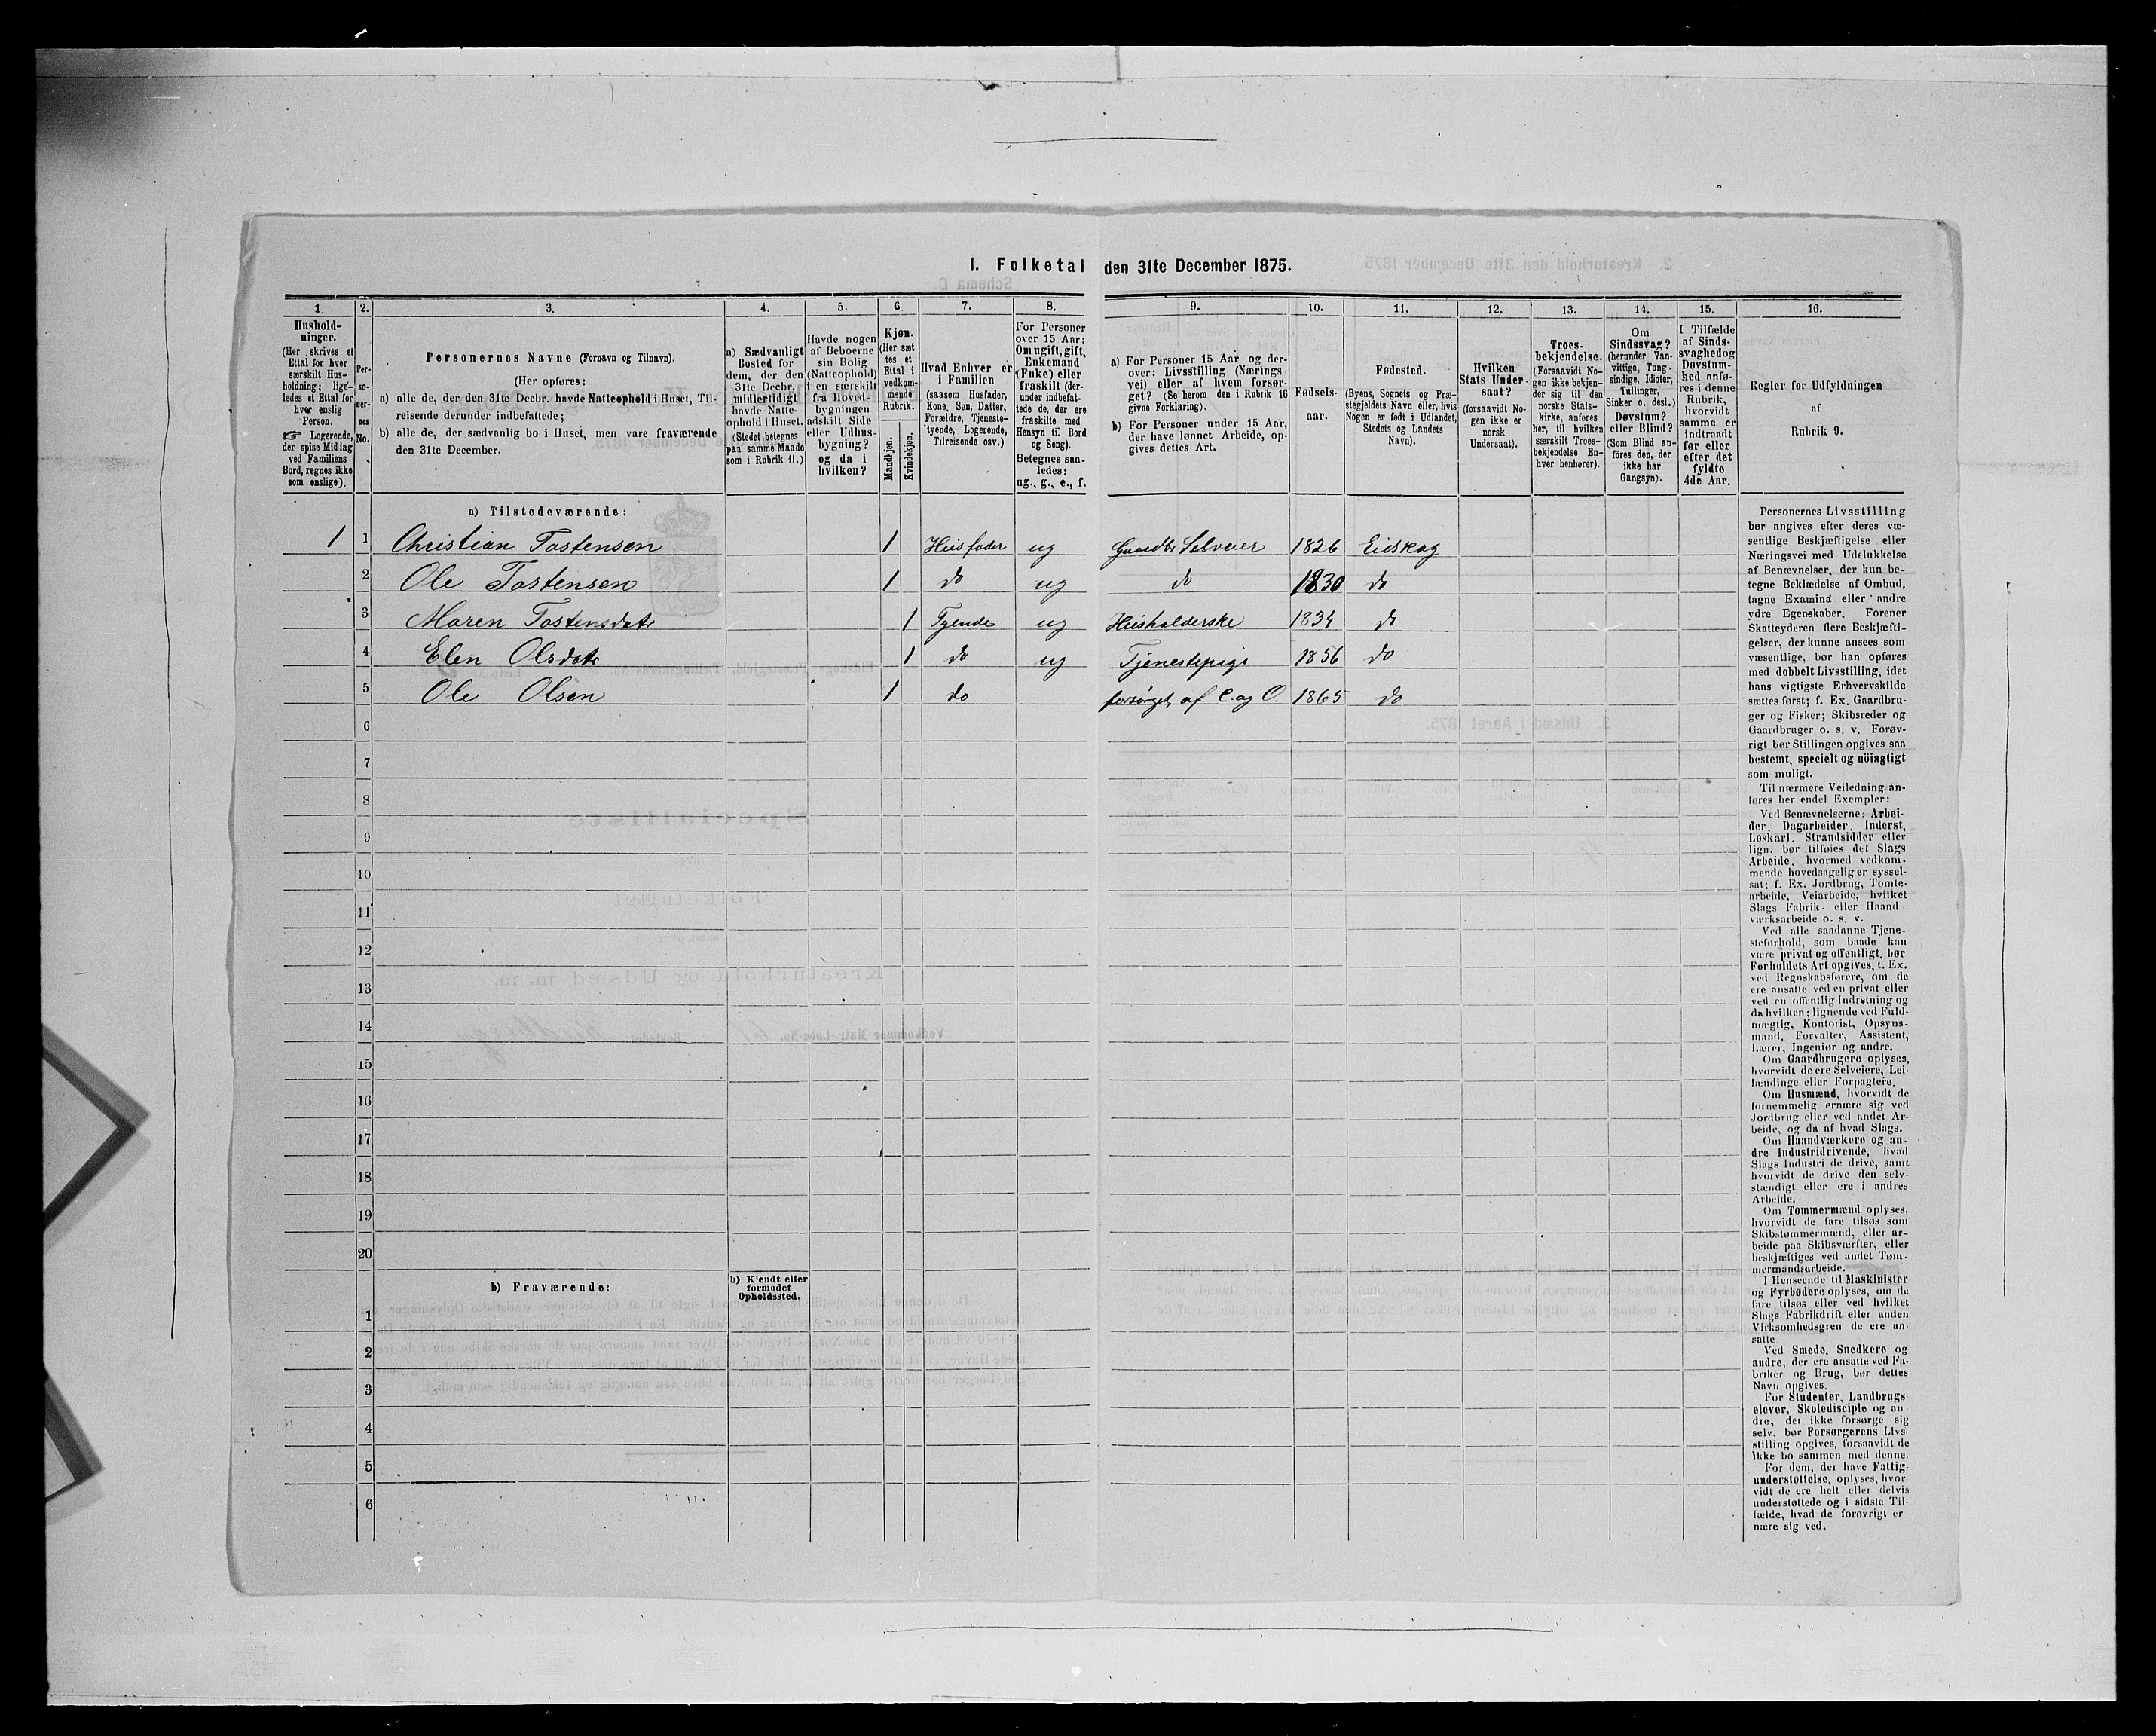 I. Folketal den 31te December 1875.
1. 2. 3. 4. 5. 6. 7. 8. 9. 10. 11. 12. 13. 14. 15. 16.
Hushold-
ninger.
(Her skrives et
Ettal for hver
særskilt Hus-
holdning; lige-
ledes et Ettal for
hver enslig
Person.
☞ Logerende,
der spise Middag
ved Familiens
Bord, regnes ikke
som enslige).
Per-
so-
ner-
nes
No.
Personernes Navne (Fornavn og Tilnavn).
(Her opføres:
a) alle de, der den 31te Decbr. havde Natteophold i Huset, Til-
reisende derunder indbefattede;
b) alle de, der sædvanlig bo i Huset, men vare fraværende
den 31te December.
a) Sædvanligt
Bosted for
dem, der den
31te Decbr.
midlertidigt
havde Natte-
ophold i Huset.
(Stedet betegnes
paa samme Maade
som i Rubrik 11.)
Havde nogen
af Beboerne
sin Bolig
(Natteophold)
i en særskilt
fra Hoved-
bygningen
adskilt Side
eller Udhus-
bygning?
og da i
hvilken?
Kjøn.
(Her sæt
tes et
Ettal i
vedkom-
mende
Rubrik.
Mandkjøn.
Kvindekjøn.
Hvad Enhver er
i Familien
(saasom Husfader,
Kone, Søn, Datter,
Forældre, Tjeneste-
tyende, Logerende,
Tilreisende osv.)
For Personer
over 15 Aar:
Om ugift, gift,
Enkemand
(Enke) eller
fraskilt (der-
under indbefat-
tede de, der ere
fraskilte med
Hensyn til Bord
og Seng).
Betegnes saa-
ledes:
ug., g., e., f.
a) For Personer 15 Aar og der-
over: Livsstilling (Nærings
vei) eller af hvem forsør-
get? (Se herom den i Rubrik 16
givne Forklaring).
b) For Personer under 15 Aar,
der have lønnet Arbeide, op-
gives dettes Art.
Fødsels-
aar.
Fødested.
(Byens, Sognets og Præ-
stegjeldets Navn eller, hvis
Nogen er født i Udlandet,
Stedets og Landets
Navn).
Hvilken
Stats Under-
saat?
(forsaavidt No-
gen ikke er
norsk
Undersaat).
Troes-
bekjendelse.
(Forsaavidt No-
gen ikke bekjen-
der sig til den
norske Stats-
kirke, anføres
her, til hvilken
særskilt Troes-
bekjendelse En-
hver henhører).
Om
Sindssvag?
(herunder Van-
vittige, Tung-
sindige, Idioter,
Tullinger,
Sinker o. desl.)
Døvstum?
eller Blind?
(Som Blind an-
føres den, der
ikke har
Gangsyn).
I Tilfælde
af Sinds-
svaghed og
Døvstum-
hed anfø-
res i denne
Rubrik,
hvorvidt
samme er
indtraadt
før eller
efter det
fyldte
4de Aar.
Regler for Udfyldningen
af
Rubrik 9.
a) Tilstedeværende:
1 1 Christian Tostensen 1 Husfader ug Gaardbr Selveier 1826 Eidskog
2 Ole Tostensen 1 do ug do 1830 do
3 Maren Tostensdatr 1 Tyende ug Husholderske 1834 do
4 Elen Olsdatr 1 do ug Tjenestepige 1856 do
5 Ole Olsen 1 do forsørget af C. og O. 1865 do
6
7
8
9
10
11
12
13
14
15
16
17
18
19
20
b) Fraværende:
b) Kjendt eller
formodet
Opholdssted.
1
2
3
4
5
6
Personernes Livsstilling
bør angives efter deres væ-
sentlige Beskjæftigelse eller
Næringsvei med Udelukkelse
af Benævnelser, der kun be-
tegne Beklædelse af Ombud,
tagne Examina eller andre
ydre Egenskaber. Forener
Skatteyderen flere Beskjæfti-
gelser, der kunne ansees som
væsentlige, bør han opføres
med dobbelt Livsstilling, idet
hans vigtigste Erhvervskilde
sættes først; f. Ex. Gaardbru-
ger og Fisker; Skibsreder og
Gaardbruger o. s. v. Forøv-
rigt bør Stillingen opgives saa
bestemt, specielt og nöiagtigt
som muligt.
Til nærmere Veiledning an-
føres her endel Exempler:
Ved Benævnelserne: Arbei-
der, Dagarbeider, Inderst,
Løskarl, Strandsidder eller
lign. bør tilføies det Slags
Arbeide, hvormed vedkom-
mende hovedsagelig er syssel-
sat; f. Ex. Jordbrug, Tomte-
arbeide, Veiarbeide, hvilket
Slags Fabrik- eller Haand
værksarbeide o. s. v.
Ved alle saadanne Tjene-
steforhold, som baade kan
være privat og offentligt, bør
Forholdets Art opgives, t. Ex.
ved Regnskabsførere, om de
ere ansatte ved en privat eller
ved en offentlig Indretning og
da hvilken; lignende ved Fuld-
mægtig, Kontorist, Opsyns-
mand, Forvalter, Assistent,
Lærer, Ingeniør og andre.
Om Gaardbrugere oplyses,
hvorvidt de ere Selveiere, Lei-
lændinge eller Forpagtere.
Om Husmænd, hvorvidt de
fornemmelig ernære sig ved
Jordbrug eller ved andet Ar-
beide, og da af hvad Slags.
Om Haandværkere og an-
dre Industridrivende, hvad
Slags Industri de drive, samt
hvorvidt de drive den selv-
stændigt eller ere i andres
Arbeide.
Om Tømmermænd oplyses,
hvorvidt de fare tilsøs som
Skibstømmermænd, eller ar-
beide paa Skibsværfter, eller
beskjæftiges ved andet Tøm-
mermandsarbeide.
I Henseende til Maskinister
og Fyrbødere oplyses, om de
fare tilsøs eller ved hvilket
Slags Fabrikdrift eller anden
Virksomhedsgren de ere an-
satte.
Ved Smede, Snedkere og
andre, der ere ansatte ved Fa-
briker og Brug, bør dettes
Navn opgives.
For Studenter, Landbrugs
elever, Skoledisciple og an
dre, der ikke forsørge sig
selv, bør Forsørgerens Livs-
stilling opgives, forsaavidt de
ikke bo sammen med denne.
For dem, der have Fattig-
understøttelse, oplyses, hvor
vidt de ere helt eller delvis
understøttede og i sidste Til-
fælde, hvad de forøvrigt er
nære sig ved.